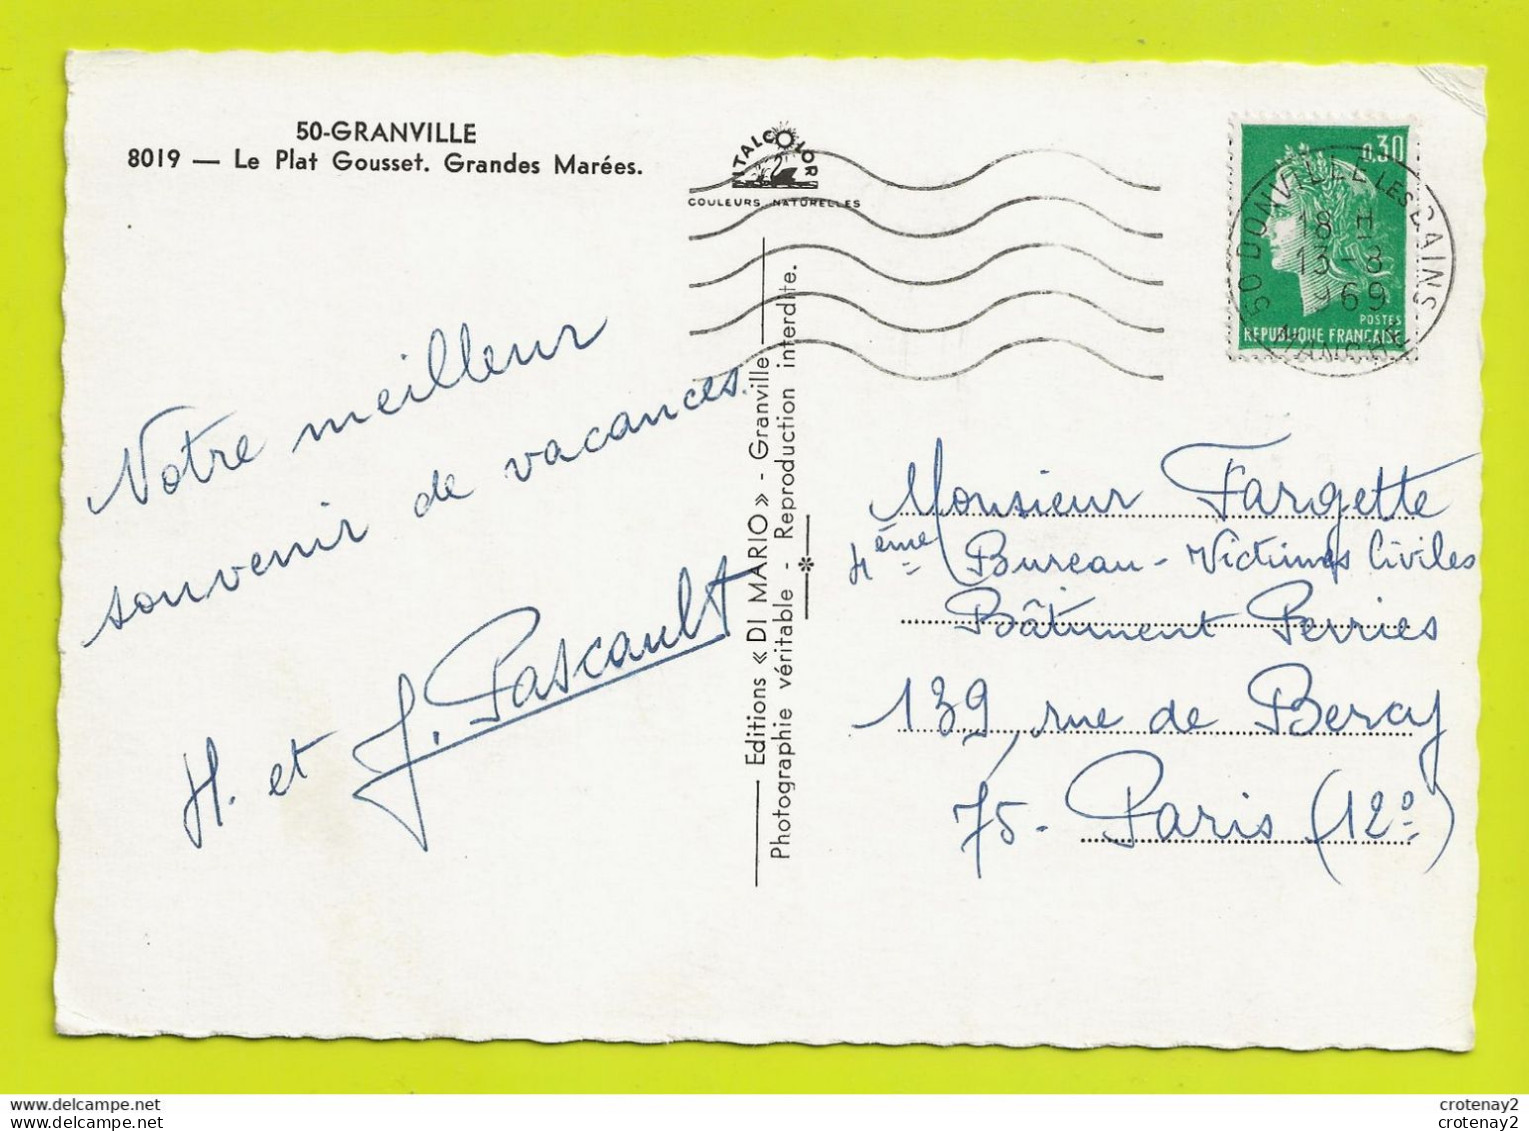 50-GRANVILLE
8019 — Le Plat Gousset. Grandes Marées.
ITALCOLOR
COULEURS NATURELLES
0,30
POSTES
REPUBLIQUE FRANÇAISE
50 DONVILLE LES BAINS
18 H
13-8
1969
MANCHE
Notre meilleur
souvenir de vacances.
H. et J. Pascault
Editions « DI MARIO » - Granville
Photographie véritable - Reproduction interdite.
Monsieur Fargette
4ème Bureau - Victimes Civiles
Bâtiment Perries
139, rue de Bercy
75. Paris (12º)
crotenay2
crotenay2
www.delcampe.net
www.delcampe.net